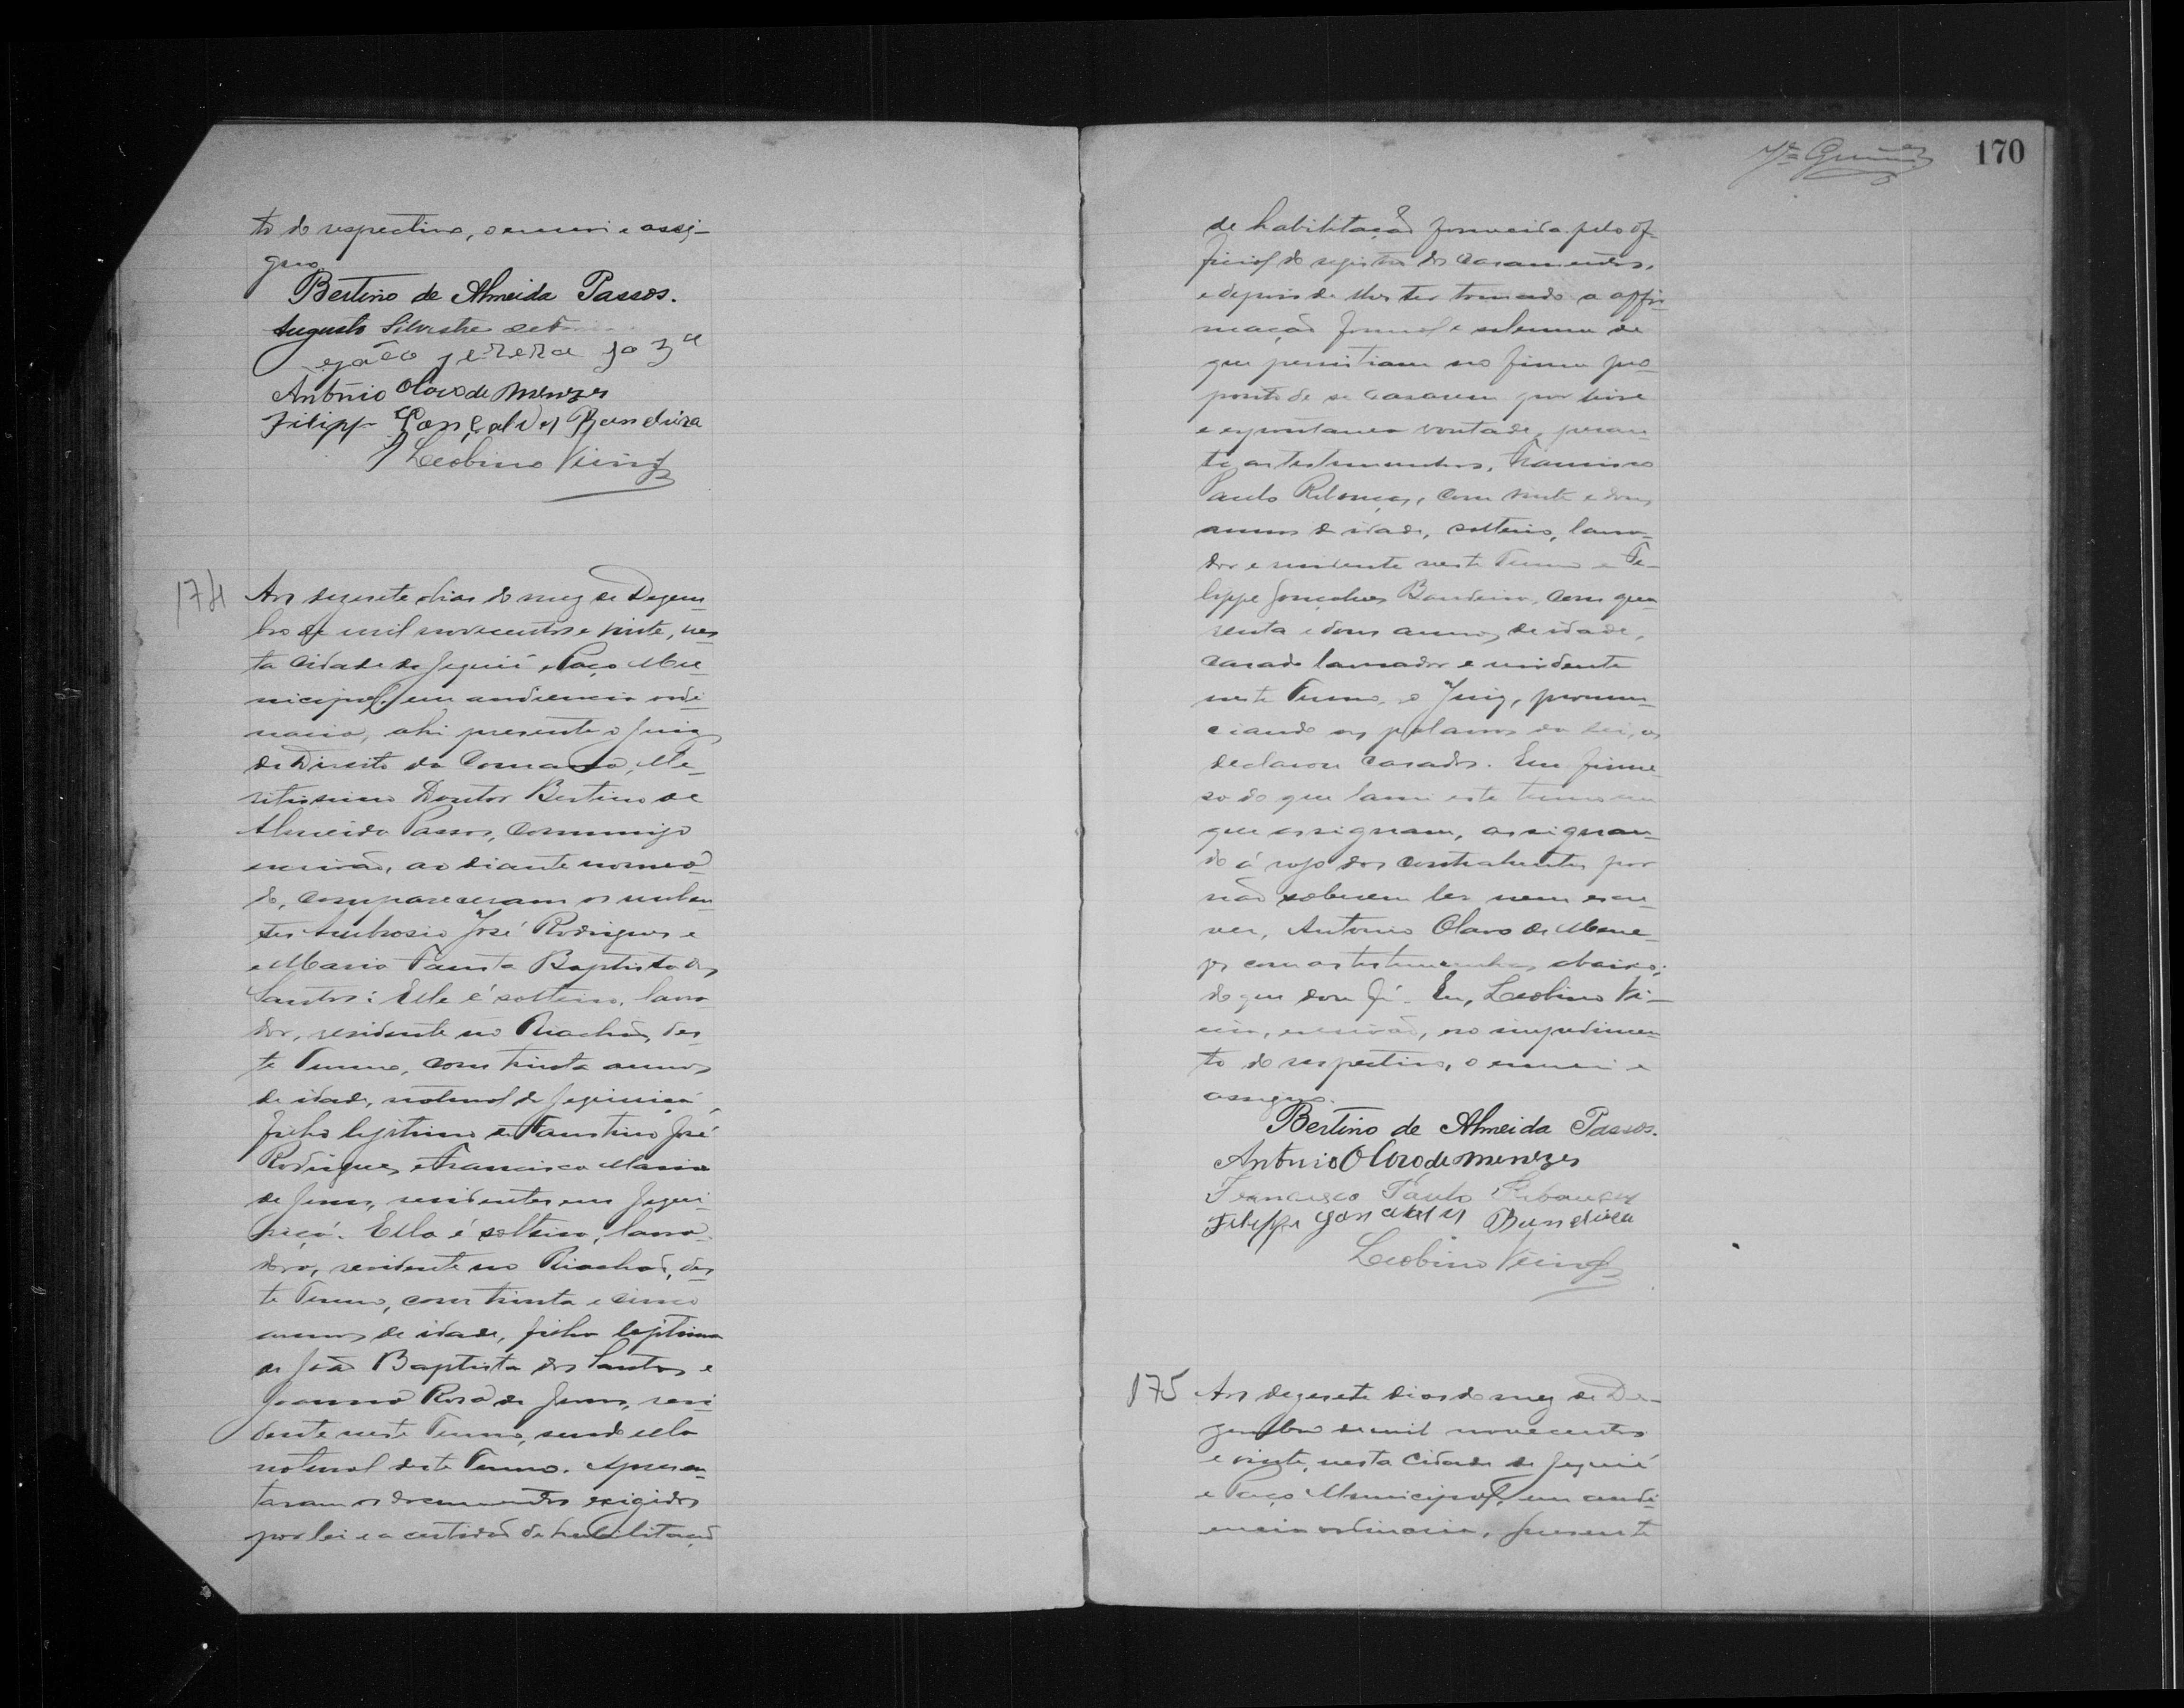 to do respectivo, o escrevi e assi-
gno
Bertino de Almeida Passos.
Augusto Silvestre
Antonio Olavo de Menezes
Filipp Gonçalves Bandeira
Leobino Vieira
174
Aos dezesete dias do mez de Dezem-
bro de mil novecentos e vinte, nes-
ta Cidade de Jequié e Paço Mu-
nicipal, em audiencia ordi-
naria, ahi presente o Juiz
de Direito da Comarca, Me-
ritissimo Doutor Bertino de
Almeida Passos, commigo
escrivão, ao diante nomea-
do, compareceram os nuben-
tes Ambrosio José Rodrigues e
e Maria Fausta Baptista dos
Santos: Elle é solteiro, lavra-
dor, residente no Riachão, des-
te Termo, com trinta annos
de idade, natural de Jequiriçá,
filho legitimo de Faustino José
Rodrigues e Francisca Maria
de Jesus, residentes em Jequi-
riçá. Ella é solteira, lavra-
dora, residente no Riachão, des-
te Termo, com trinta e cinco
annos de idade, filha legitima
de João Baptista dos Santos e
Joanna Rosa de Jesus, resi-
dente neste Termo, sendo ella
natural deste Termo. Apresen-
taram os documentos exigidos
por lei e a certidão de habilitação
170
de habilitação fornecida pelo of-
ficial do registro dos casamentos,
e depois de lhes ter tomado a affir-
mação formal e solemne de
que persistiam no firme pro-
posito de se casarem por livre
e espontanea vontade, peran-
te as testemunhas, Francisco
Paulo Rebouças, com vinte e dous
annos de idade, solteiro, lavra-
dor e residente neste Termo e Fe-
lippe Gonçalves Bandeira, com qua-
renta e dous annos de idade,
casado lavrador e residente
neste Termo, o Juiz, pronun-
ciando as palavras da lei, os
declarou casados. Em firme-
sa do que lavrei este termo em
que assignam, assignan-
do á rogo dos contrahentes por
não saberem ler nem escre-
ver, Antonio Olavo de Mene-
zes com as testemunhas abaixo;
do que dou fé. Eu, Leobino Vi-
eira, escrivão, no impedimen-
to do respectivo, o escrevi e
assigno.
Bertino de Almeida Passos.
Antonio Olavo de Menezes
Francisco Paulo Rebouças
Felippe Gonçalves Bandeira
Leobino Vieira
175
Aos dezesete dias do mez de De-
zembro de mil novecentos
e vinte, nesta Cidade de Jequié
e Paço Municipal, em audi-
encia ordinaria, presente